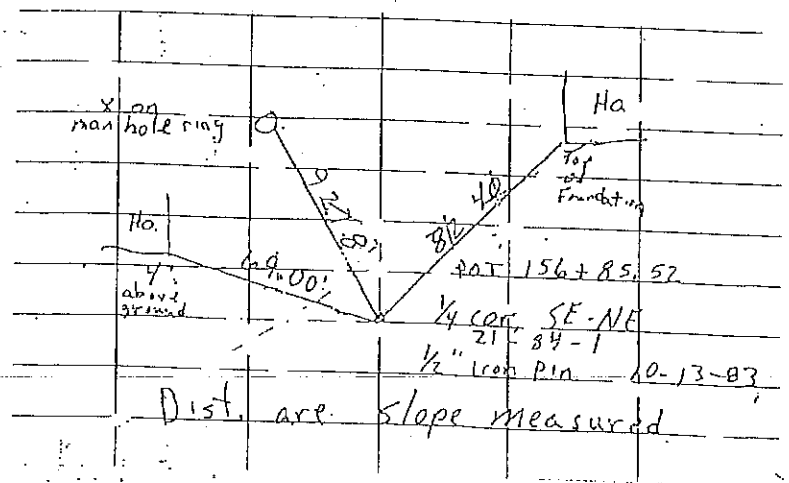 X on
man hole ring
Ho
Top
of
Foundation
Ho.
4'
above
ground
82.40
69.00'
POT 156+85.52
1/4 cor. SE-NE
21-84-1
1/2" Iron Pin 10-13-83
Dist. are slope measured